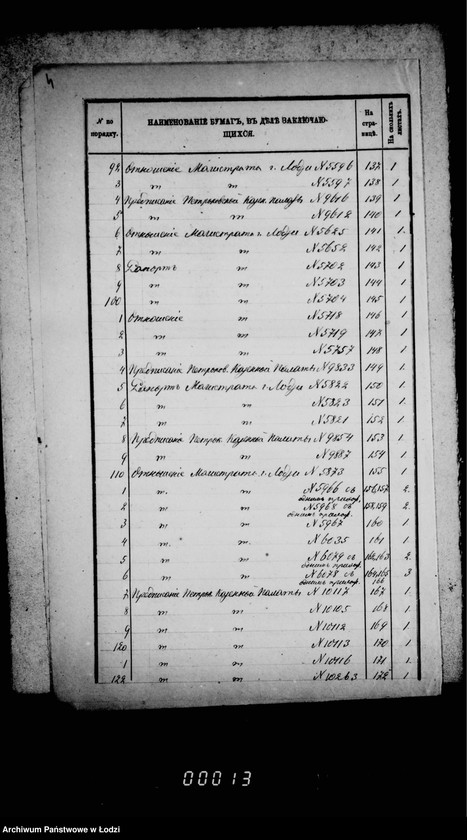 4
№ по порядку.
НАИМЕНОВАНІЕ БУМАГЪ, ВЪ ДѢЛѢ ЗАКЛЮЧАЮ-
ЩИХСЯ.
На стра-
ницѣ.
На сколькихъ листахъ.
92 Отношеніе Магистрата г. Лодзи N 5596 137 1
3 " " N 5597 138 1
4 Предписаніе Петроковской Казен. Палаты N 9616 139 1
5 " " N 9612 140 1
6 Отношеніе Магистрата г. Лодзи N 5625 141 1
7 " " N 5652 142 1
8 Рапортъ " N 5702 143 1
9 " " N 5703 144 1
100 " " N 5704 145 1
1 Отношеніе " N 5718 146 1
2 " " N 5719 147 1
3 " " N 5757 148 1
4 Предписаніе Петроков. Казенной Палаты N 9833 149 1
5 Рапортъ Магистрата г. Лодзи N 5822 150 1
6 " " N 5823 151 1
7 " " N 5821 152 1
8 Предписаніе Петрок. Казенной Палаты N 9854 153 1
9 " " N 9887 154 1
110 Отношеніе Магистрата г. Лодзи N 5873 155 1
1 " " N 5966 съ 156,157 2
однимъ прилож.
2 " " N 5968 съ 158,159 2
однимъ прилож.
3 " " N 5967 160 1
4 " " N 6035 161 1
5 " " N 6079 съ 162,163 2
однимъ прилож.
6 " " N 6078 съ 164,165 3
однимъ прилож. 166
7 Предписаніе Петрок. Казенной Палаты N 10117 167 1
8 " " N 10105 168 1
9 " " N 10112 169 1
120 " " N 10113 170 1
1 " " N 10116 171 1
122 " " N 10263 172 1
00013
Archiwum Państwowe w Łodzi